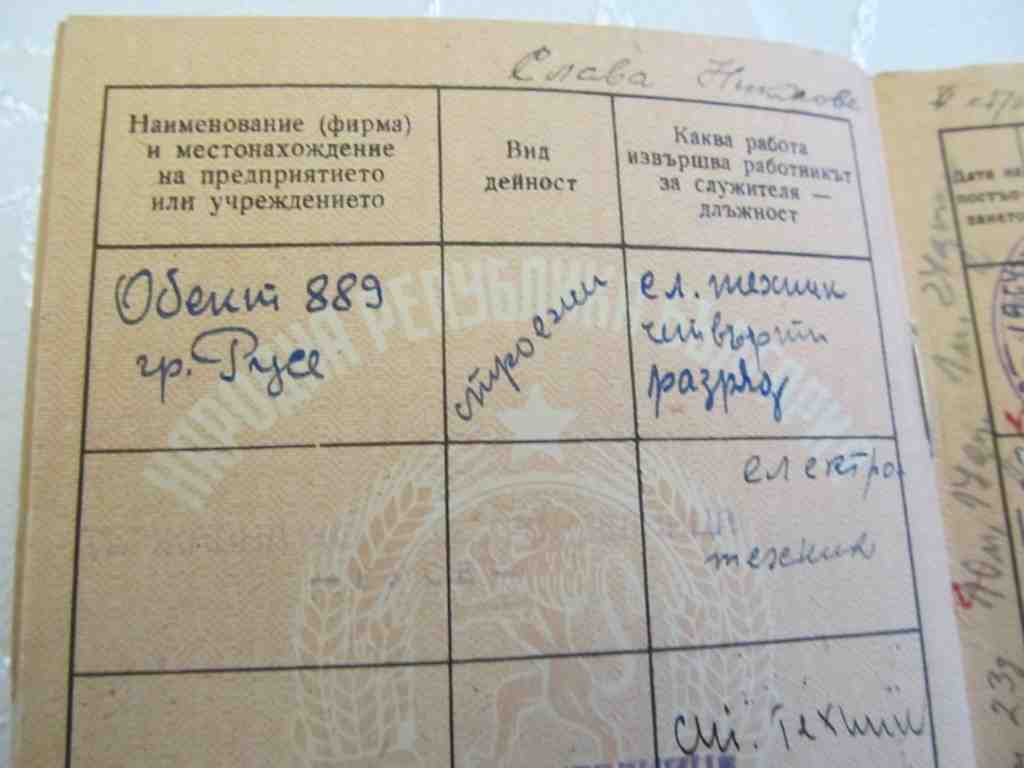 Слава
Наименование (фирма)
и местонахождение
на предприятието
или учреждението
Вид
дейност
Каква работа
извършва работникът
за служителя —
длъжност
Обект 889
гр. Русе
строежи
ел. техник
четвърти
разряд
електро
техник
ст. техник
НАРОДНА РЕПУБЛИКА БЪЛГАРИЯ
Дата на
постъп
ването